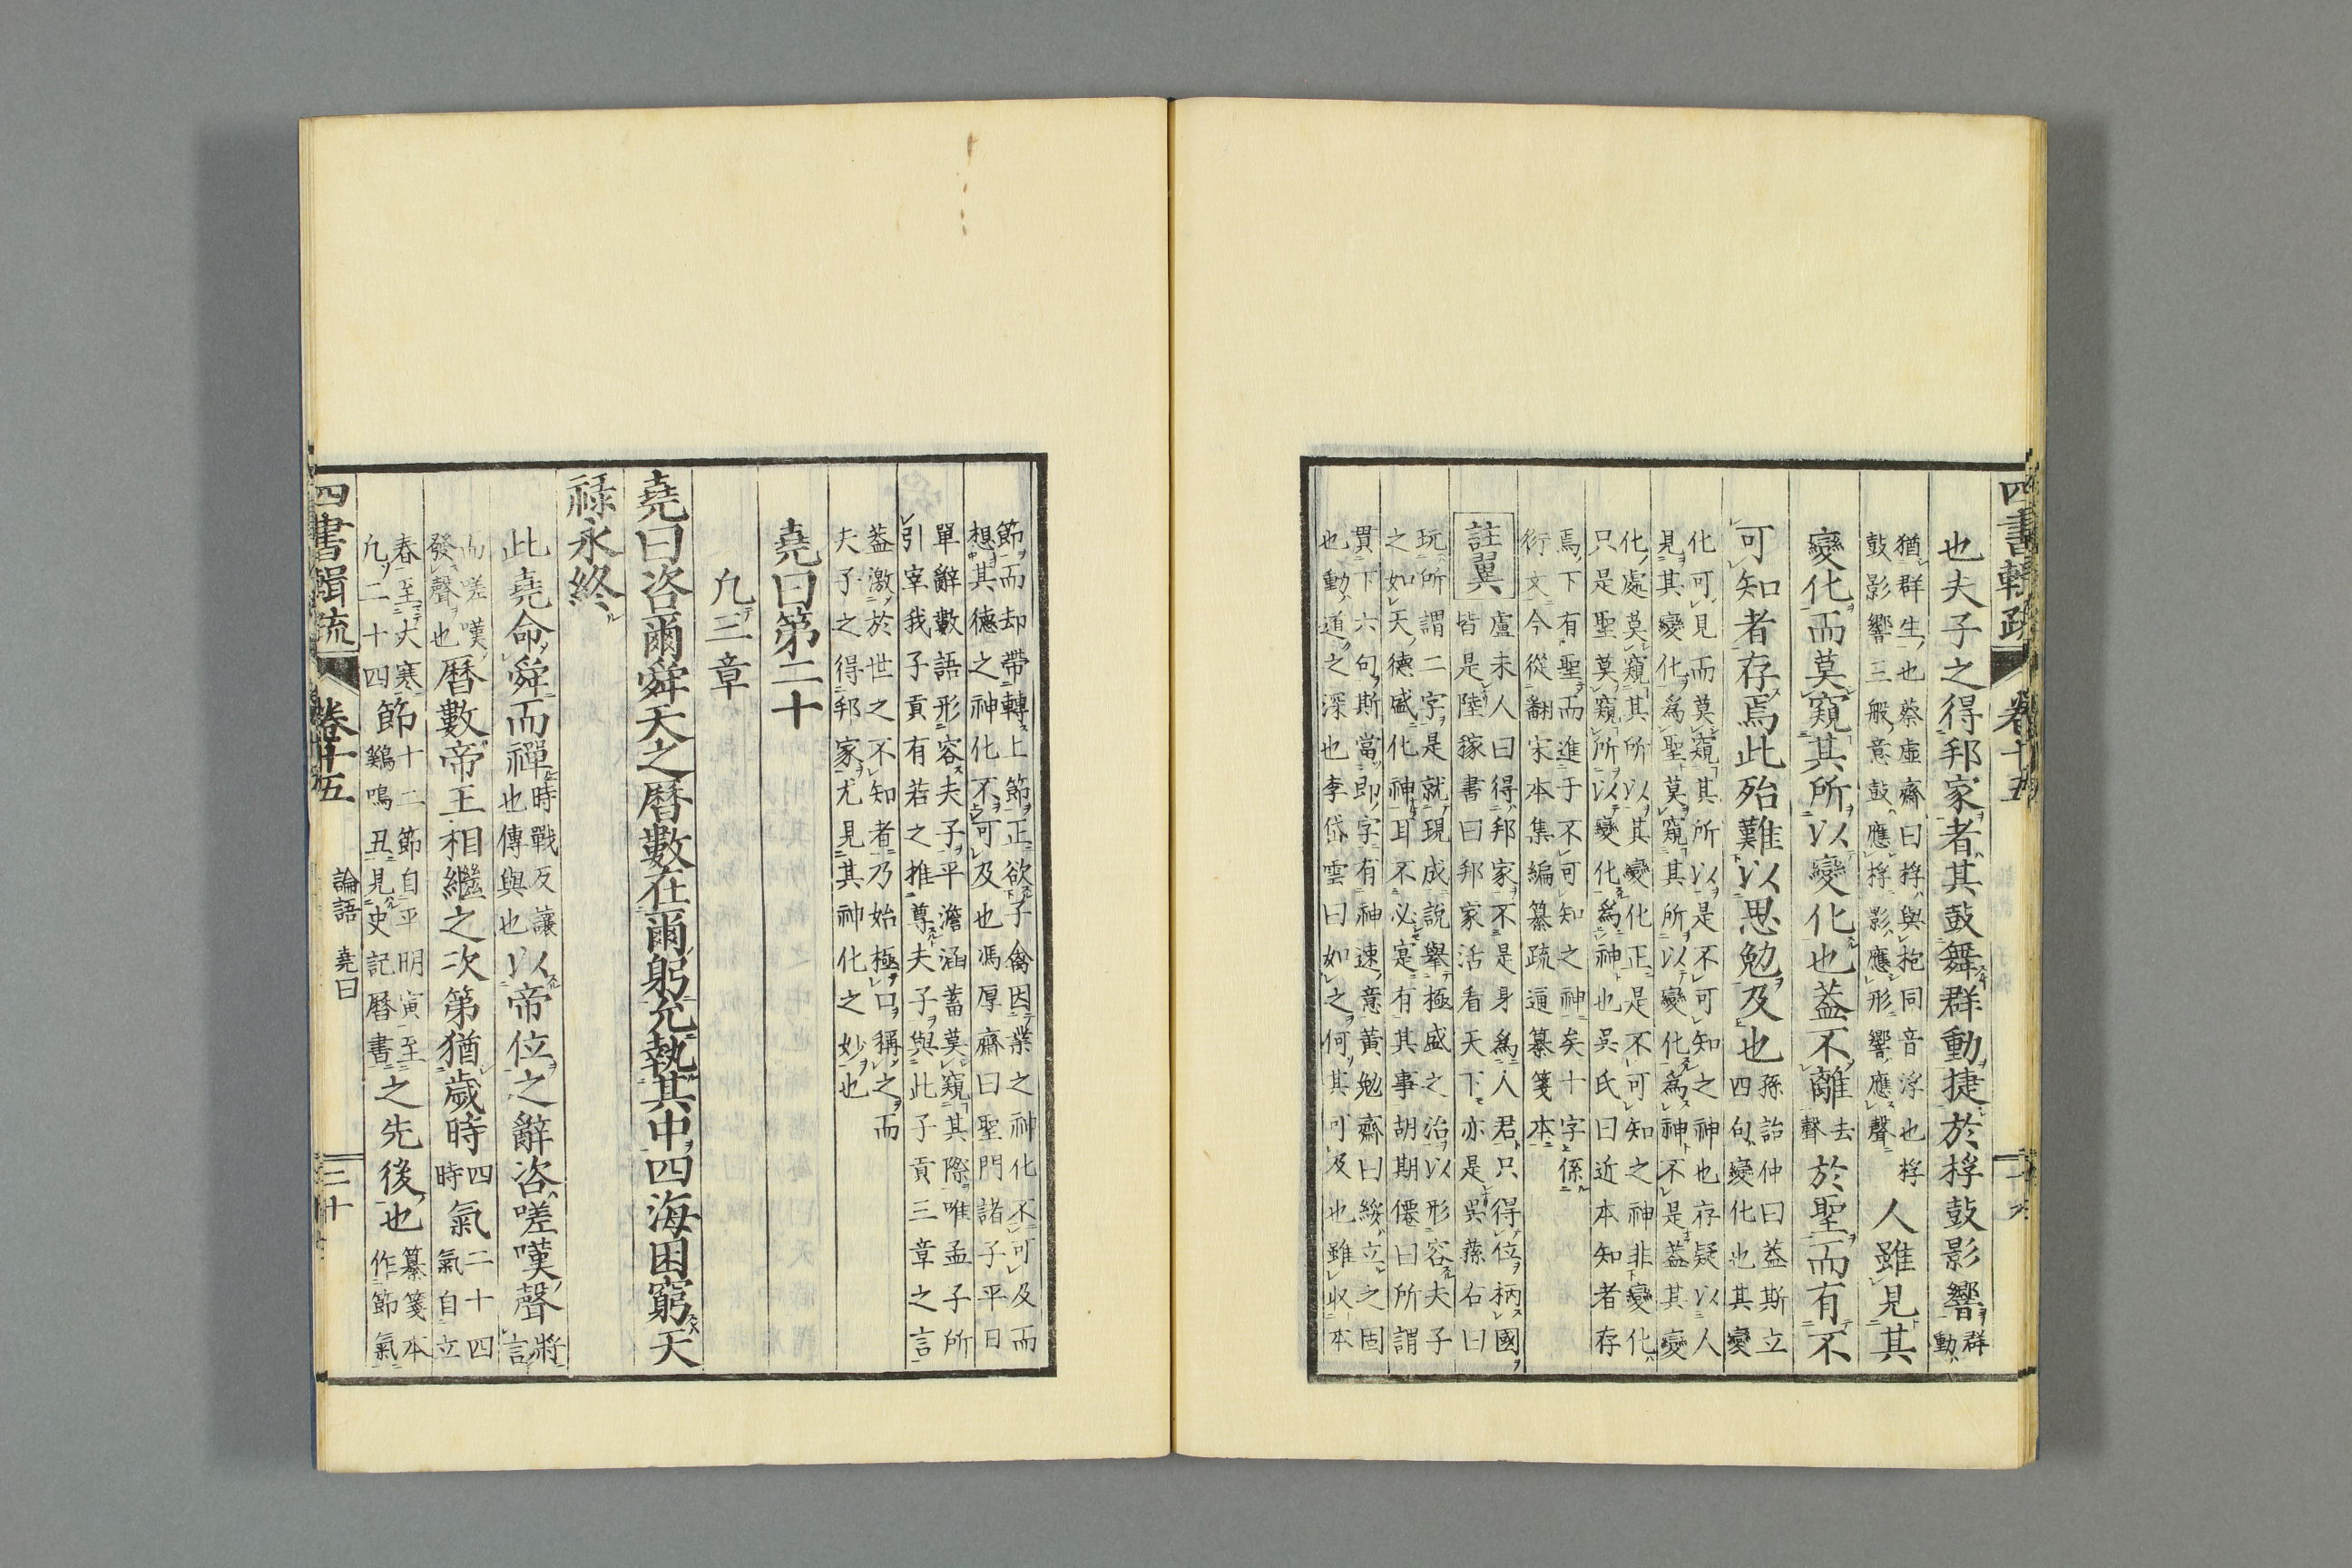 四書輯疏 卷十五
也夫子之得邦家者其鼓舞群動捷於桴鼓影響群動
猶群生也蔡虛齋曰桴與枹同音浮也桴
鼓影響三般意鼓應桴影應形響應聲人雖見其
變化而莫窺其所以變化也蓋不離去聲於聖而有不
可知者存焉此殆難以思勉及也孫詒仲曰蓋斯立
四句變化也其變
化可見而莫窺其所以是不可知之神也存疑以人
見其變化為聖莫窺其所以變化為神不是蓋其變
化處莫窺其所以其變化正是不可知之神非變化
只是聖莫窺所以變化為神也吳氏曰近本知者存
焉下有聖而進于不可知之神矣十字係
衍文今從翻宋本集編纂疏通纂箋本
註翼 盧未人曰得邦家不是身為人君只得位柄國
皆是陸稼書曰邦家活看天下亦是吳蓀右曰
玩所謂二字是就現成說舉極盛之治以形容夫子
之如天德盛化神耳不必寔有其事胡期僊曰所謂
貫下六句斯當即字有神速意黃勉齋曰綏立之固
也動道之深也李岱雲曰如之何其可及也雖收本
節而却帶轉上節正欲子禽因業之神化不可及而
想其德之神化不可及也馮厚齋曰聖門諸子平日
單辭數語形容夫子平澹涵蓄莫窺其際唯孟子所
引宰我子貢有若之推尊夫子與此子貢三章之言
蓋激於世之不知者乃始極口稱之而
夫子之得邦家尤見其神化之妙也
堯曰第二十
凢三章
堯曰咨爾舜天之曆數在爾躬允執其中四海困窮天
祿永終
此堯命舜而禪時戰反讓也傳與也以帝位之辭咨嗟嘆聲將言
而嗟嘆發聲也曆數帝王相繼之次第猶歲時四時氣二十四氣自立
春至大寒凢二十四節十二節自平明寅至雞鳴丑見史記曆書之先後也纂箋本作節氣
四書輯疏 卷十五 論語 堯曰 三十